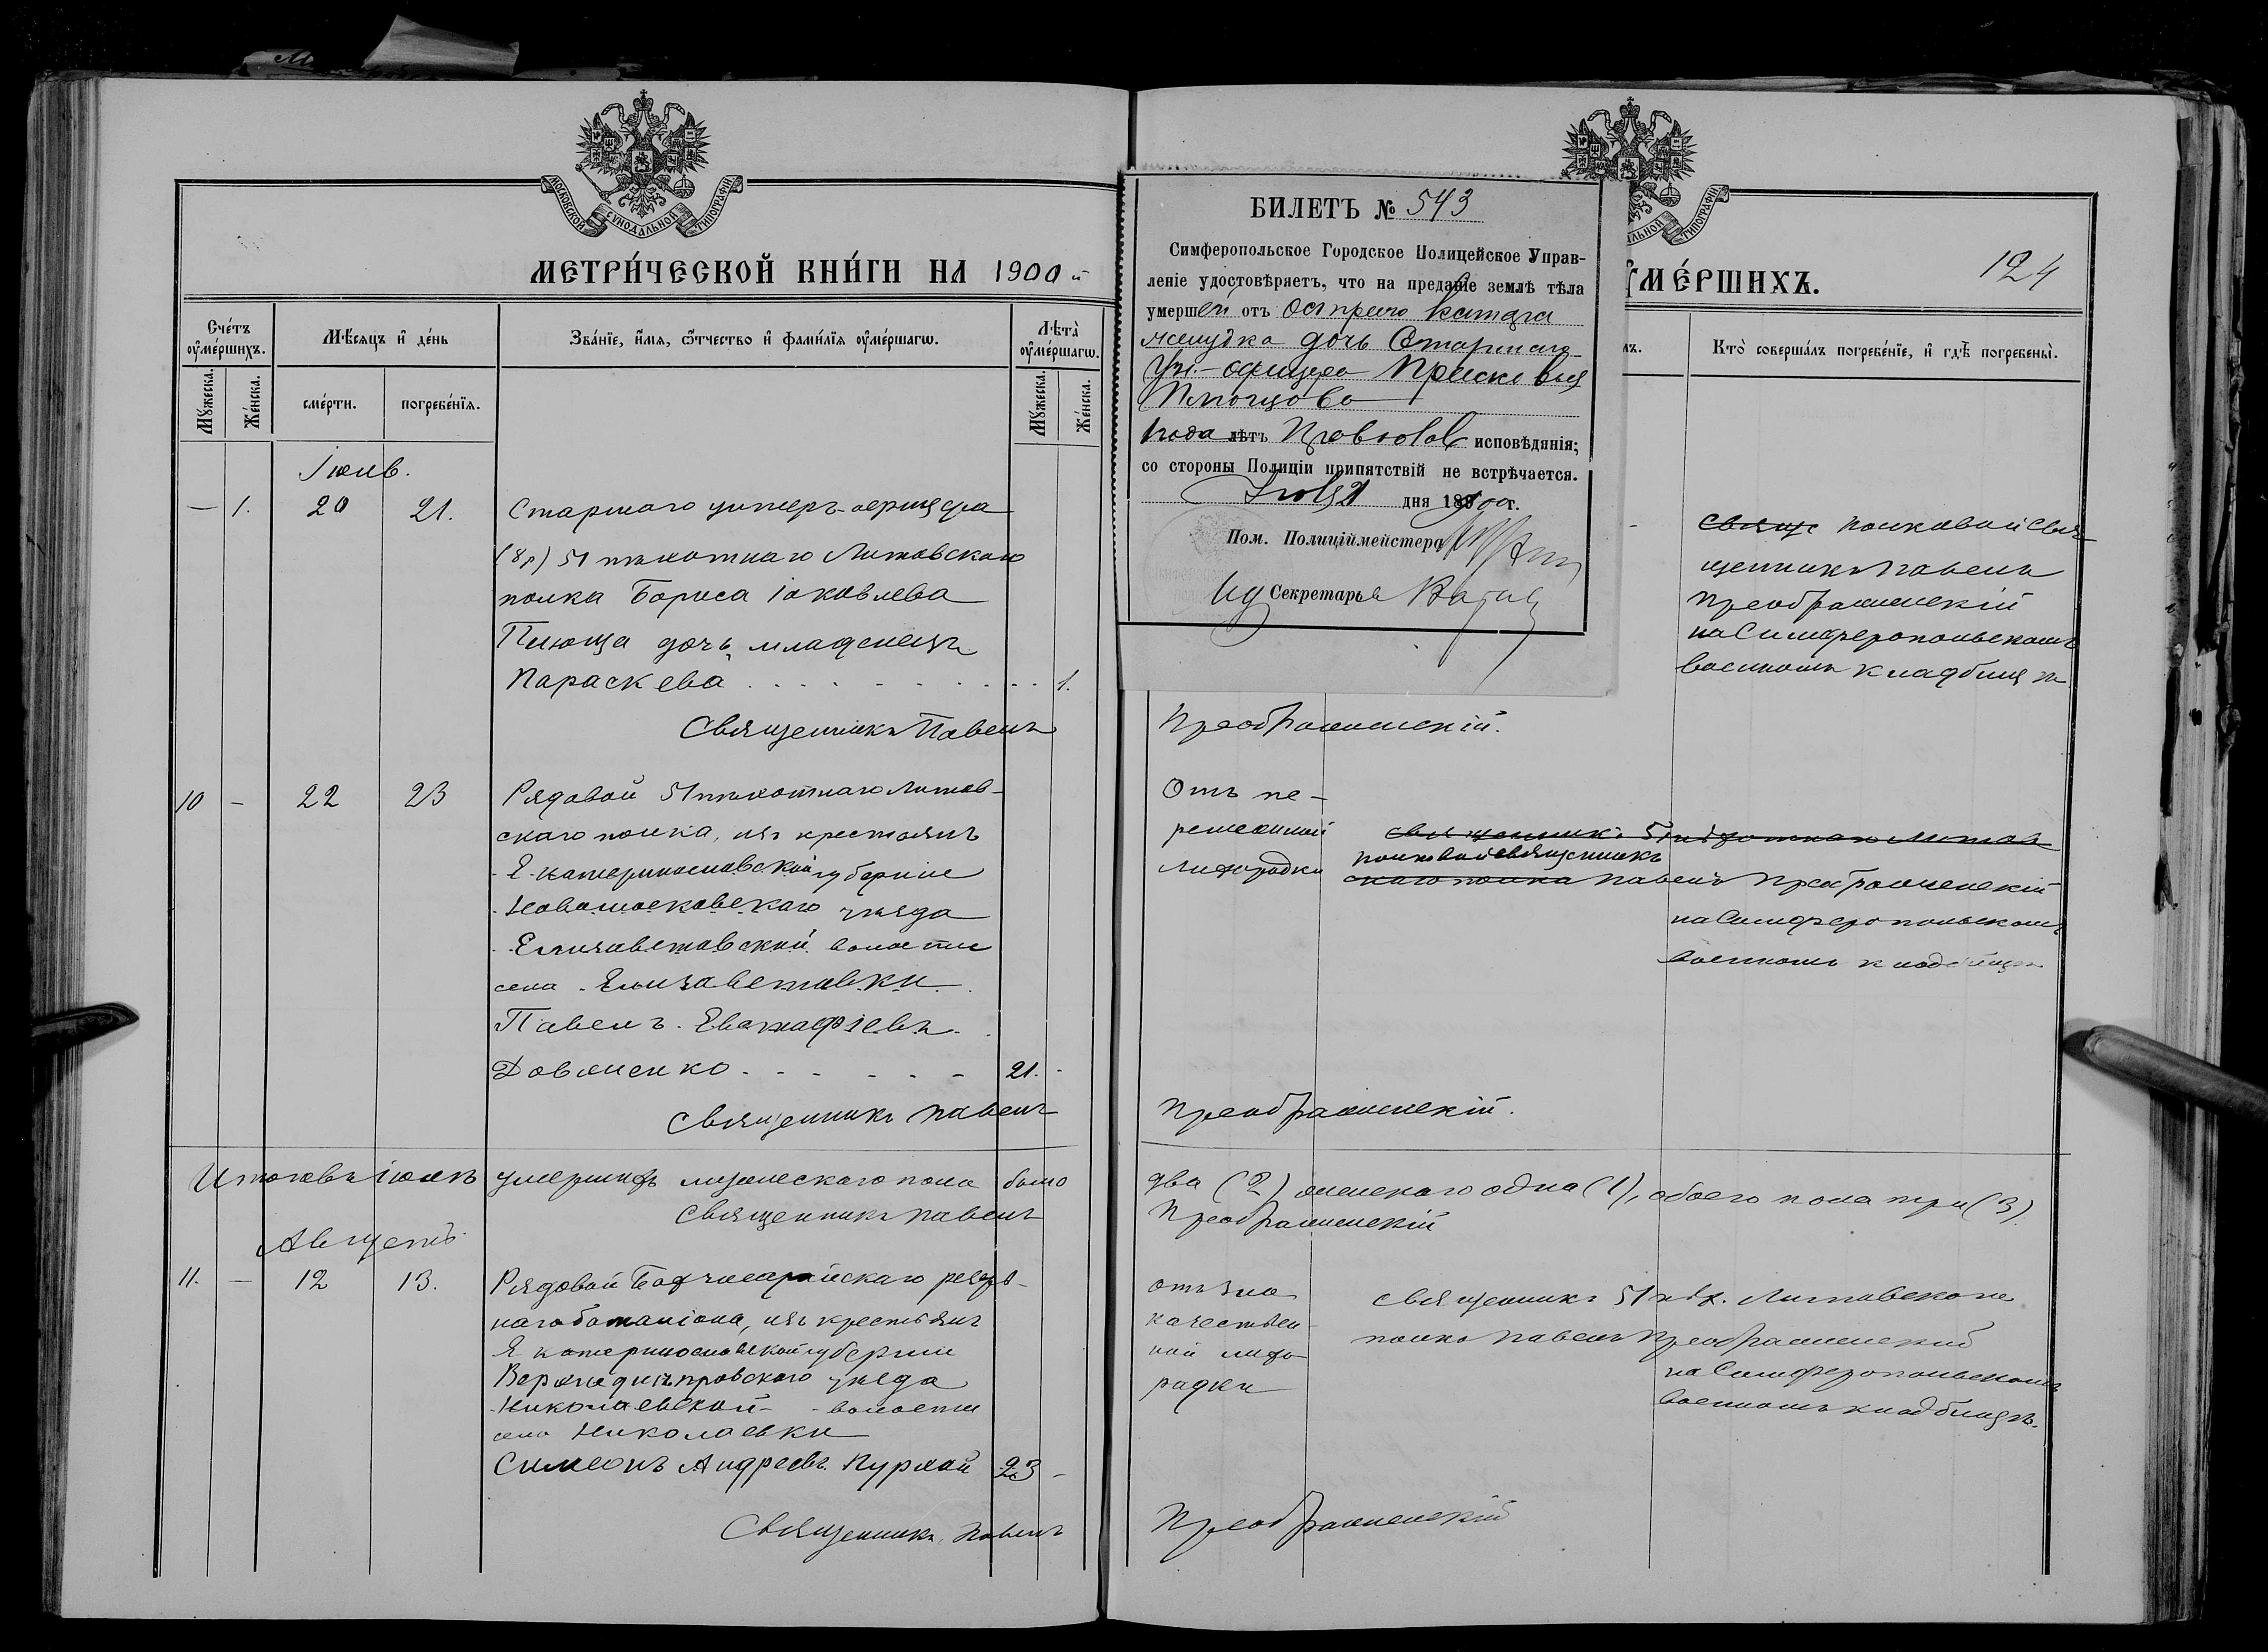 МОСКОВСКОЙ СУНОДАЛЬНОЙ ТИПОГРАФІИ
МЕТРИ́ЧЕСКОЙ КНИ́ГИ НА 1900 й
Сче́тъ оу҆ме́ршихъ.
Мѣ́сяцъ и҆ де́нь
Зва́нїе, и҆́мѧ, ѻ҆́тчество и҆ фами́лїѧ оу҆ме́ршагѡ.
Лѣта̀ оу҆ме́ршагѡ.
Мꙋ́жеска.
Же́нска.
сме́рти.
погребе́нїѧ.
Мꙋ́жеска.
Же́нска.
Іюль.
— 1. 20 21. Старшаго унтеръ-офицера
(8 р) 51 пѣхотнаго Литовскаго
полка Бориса Іаковлева
Плюща дочь, младенецъ
Параскева 1.
Священникъ Павелъ
10 – 22 23 Рядовой 51 пѣхотнаго Литов-
скаго полка, изъ крестьянъ
Екатеринославской губерніи
Новомосковскаго уѣзда
Елизаветовской волости
села Елизаветовки
Павелъ
Довженко 21. -
Священникъ Павелъ
Итого въ іюлѣ умершихъ мужескаго пола было
Священникъ Павелъ
Августъ.
11. – 12 13. Рядовой Бахчисарайскаго резерв-
наго баталіона, изъ крестьянъ
Екатеринославской губерніи
Верхнеднѣпровскаго уѣзда
Николаевской - волости
села Николаевки
Симеонъ Андреевъ Куркай 23 –
Священникъ Павелъ
БИЛЕТЪ № 543
Симферопольское Городское Полицейское Управ-
леніе удостовѣряетъ, что на преданіе землѣ тѣла
умершей отъ остраго катара
желудка дочь Старшаго
Ун.-офицера
1 года лѣтъ Правосл исповѣдянія;
со стороны Полиціи припятствій не встрѣчается.
Іюля 21 дня 1900 г.
Пом. Полиціймейстера
Ид Секретаря
АЛЬНОЙ ТИПОГРАФІИ
МЕ́РШИХЪ.
124
лъ.
Кто̀ соверша́лъ погребе́нїе, и҆ гдѣ̀ погребены̀.
Свяще полковой свя-
щенникъ Павелъ
Преображенскій
на Симферопольскомъ
военномъ кладбищѣ
Преображенскій.
Отъ пе-
ремежной
лихорадки
священникъ 51 пѣхотнаго Литов
полковой священникъ
скаго полка Павелъ Преображенскій
на Симферопольскомъ
военномъ кладбищѣ
Преображенскій.
два (2) женскаго одна (1), обоего пола три (3).
Преображенскій
отъ зло
качествен-
ной лихо-
радки
священникъ 51 пѣх. Литовскаго
полка Павелъ Преображенский
на Симферопольскомъ
военномъ кладбищѣ.
Преображенскій